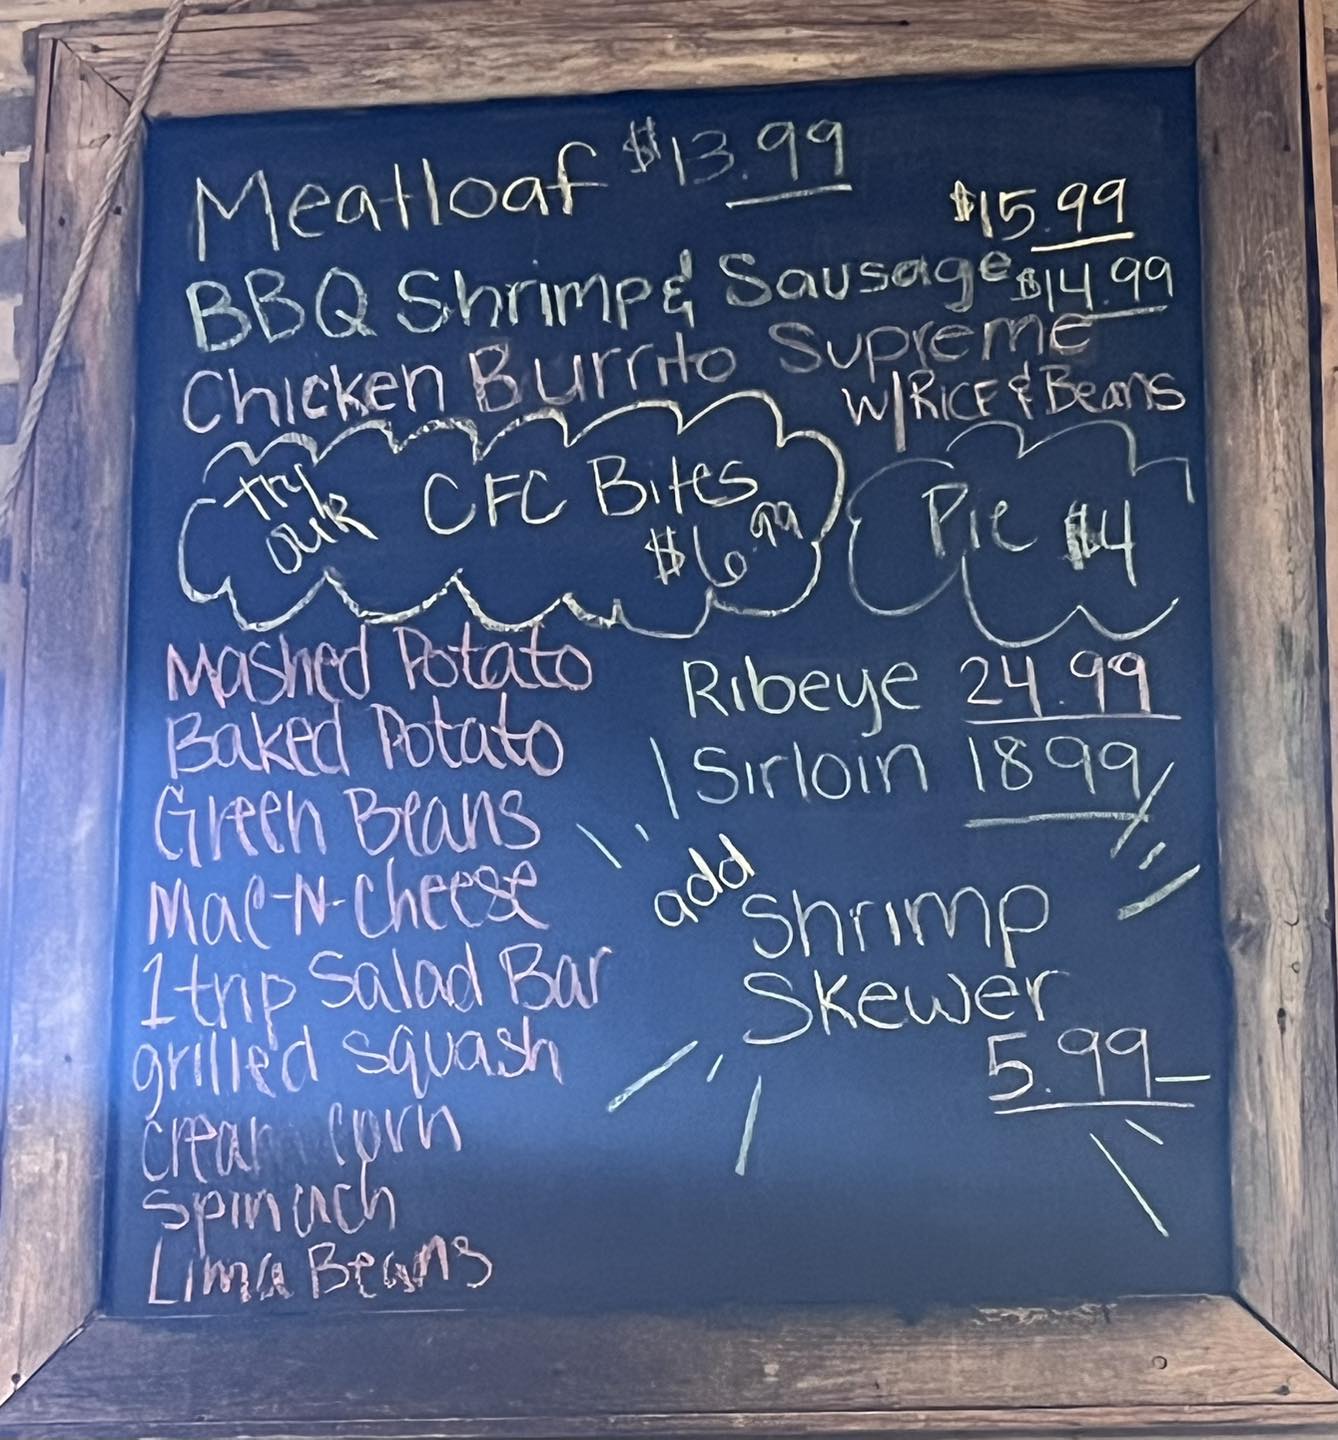 Meatloaf $13.99
$15.99
BBQ Shrimp & Sausage
$14.99
Chicken Burrito Supreme
W/RICE & Beans
Try our CFC Bites
$6.99
Pie $4
Mashed Potato
Baked Potato
Green Beans
Mac-N-Cheese
1 trip Salad Bar
grilled squash
cream corn
spinach
Lima Beans
Ribeye 24.99
Sirloin 1899
add
Shrimp
Skewer
5.99